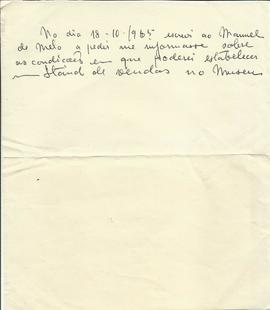 No dia 18-10-/965 escrevi ao Manuel
de Melo a pedir me informasse sobre
as condições em que poderei estabelecer
um Stand de vendas no Museu